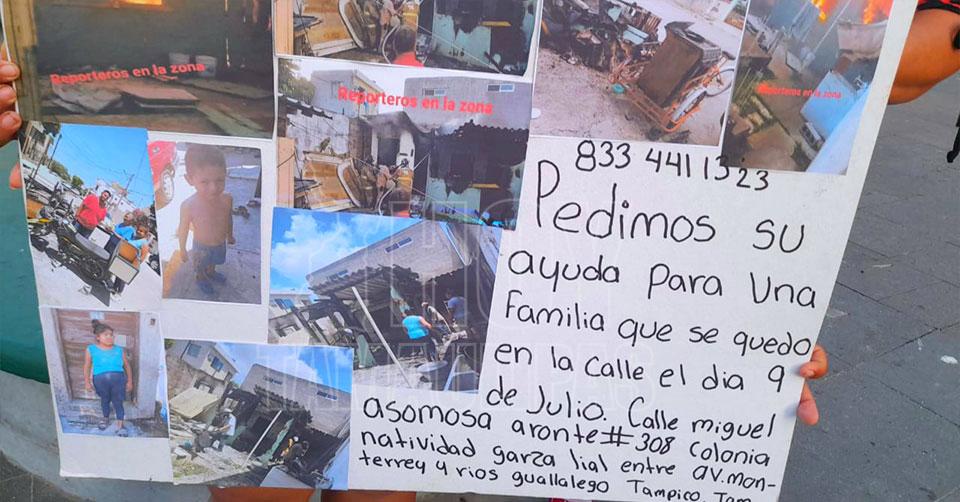 Reporteros en la zona
Reporteros en la zona
Reporteros en la zona
833 441 1323
Pedimos su
ayuda para una
familia que se quedo
en la calle el dia 9
de Julio. Calle miguel
asomosa aronte #308 Colonia
natividad garza lial entre av. mon-
terrey y rios guallalego Tampico, Tam
HOY
TAMAULIPAS